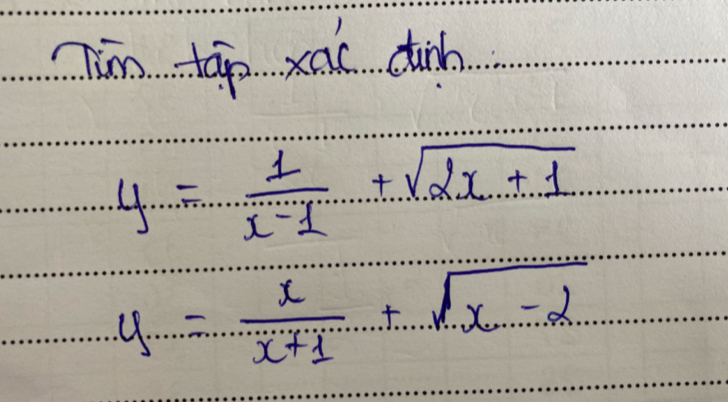 Tìm tập xác định :
y = 1/(x-1) + √(2x + 1)
y = x/(x+1) + √(x - 2)